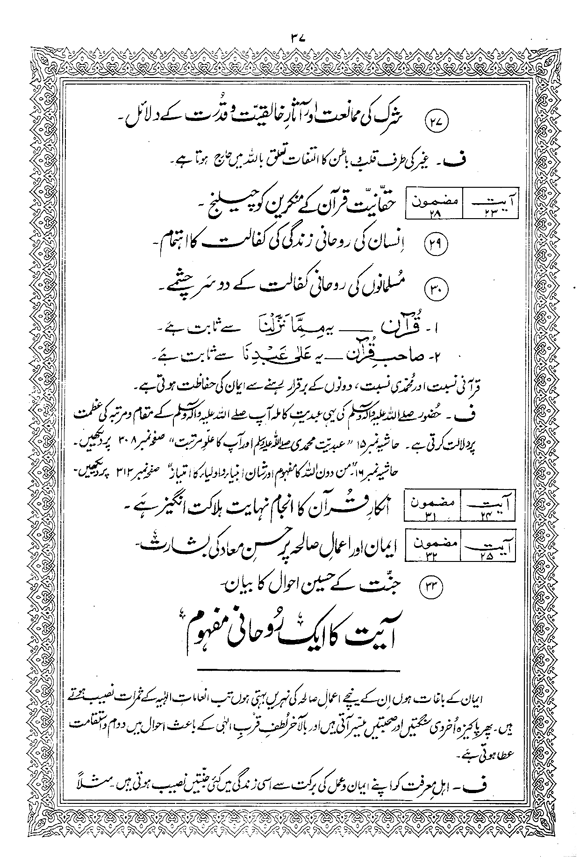 ۳۷
(۲۷) شرک کی ممانعت اور آثارِ خالقیت و قدرت کے دلائل۔
ف۔ غیر کی طرف قلب و باطن کا التفات تعلق باللہ میں حارج ہوتا ہے۔
آیت ۲۳ مضمون ۲۸ حقانیتِ قرآن کے منکرین کو چیلنج۔
(۲۹) انسان کی روحانی زندگی کی کفالت کا اہتمام۔
(۳۰) مسلمانوں کی روحانی کفالت کے دو سرچشمے۔
۱۔ قُرآن — یہ مِمَّا نَزَّلْنَا سے ثابت ہے۔
۲۔ صاحبِ قُرآن — یہ عَلٰی عَبْدِنَا سے ثابت ہے۔
قرآنی نسبت اور محمدی نسبت، دونوں کے برقرار رہنے سے ایمان کی حفاظت ہوتی ہے۔
ف۔ حضور صلے اللہ علیہ وآلہ وسلم کی یہی عبدیتِ کاملہ آپ صلے اللہ علیہ وآلہ وسلم کے مقام و مرتبہ کی عظمت
پر دلالت کرتی ہے۔ حاشیہ نمبر ۱۵ "عبدیتِ محمدی صلی اللہ علیہ وسلم اور آپ کا علوِ مرتبت" صفحہ نمبر ۳۰۸ پر دیکھیں۔
حاشیہ نمبر ۱۶ "من دون اللہ کا مفہوم اور شانِ انبیاء و اولیاء کا امتیاز" صفحہ نمبر ۳۱۲ پر دیکھیں۔
آیت ۲۴ مضمون ۳۱ انکارِ قرآن کا انجام نہایت ہلاکت انگیز ہے۔
آیت ۲۵ مضمون ۳۲ ایمان اور اعمالِ صالحہ پر حسنِ معاد کی بشارت۔
(۳۳) جنت کے حسین احوال کا بیان۔
آیت کا ایک رُوحانی مفہوم
ایمان کے باغات ہوں ان کے نیچے اعمالِ صالحہ کی نہریں بہتی ہوں تب انعاماتِ الٰہیہ کے ثمرات نصیب ہوتے
ہیں۔ پھر پاکیزہ اُخروی سنگتیں اور صحبتیں میسر آتی ہیں اور بالآخر لطفِ قربِ الٰہی کے باعث احوال میں دوام و استقامت
عطا ہوتی ہے۔
ف۔ اہلِ معرفت کو اپنے ایمان و عمل کی برکت سے اسی زندگی میں کئی جنتیں نصیب ہوتی ہیں۔ مثلاً